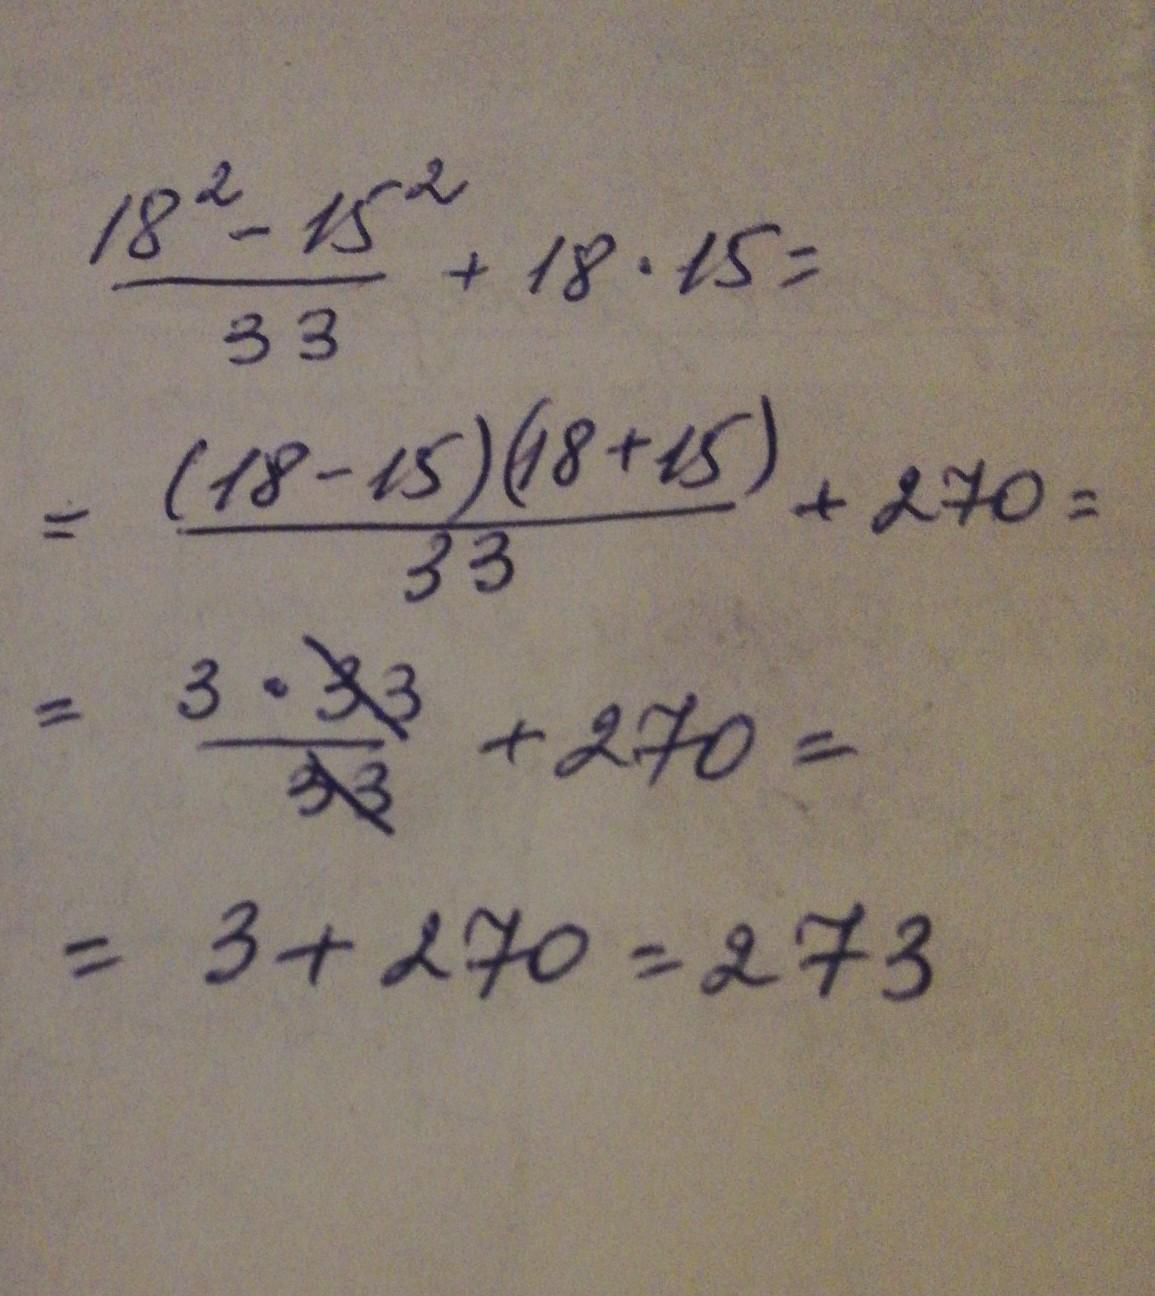 18² - 15² / 33 + 18 · 15 =
= (18 - 15)(18 + 15) / 33 + 270 =
= 3 · 33 / 33 + 270 =
= 3 + 270 = 273